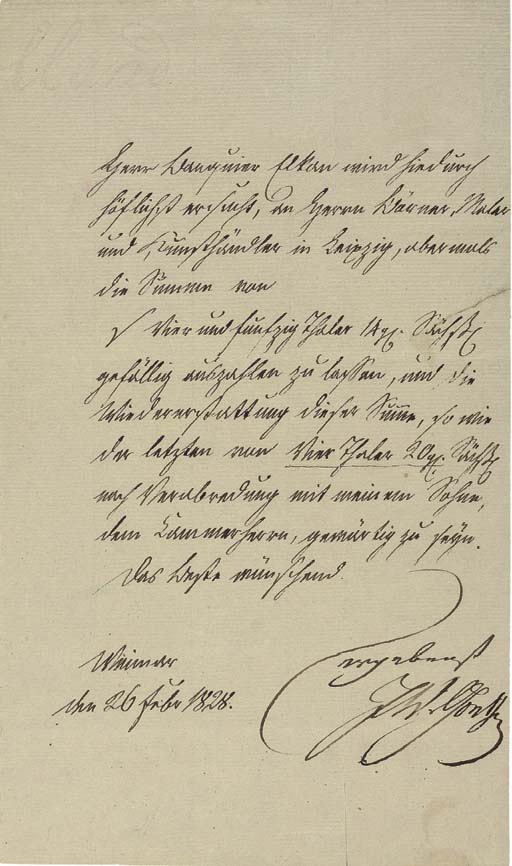 Herr Banquier Elkan wird hiedurch
höflichst ersucht, an Herrn Börner, Maler
und Kunsthändler in Leipzig, abermals
die Summe von
Vier und funfzig Thaler 14 gr. Sächß.
gefällig auszahlen zu lassen, und die
Wiedererstattung dieser Summe, so wie
der letzten von Vier Thaler 20 gr. Sächß.
nach Verabredung mit meinem Sohne,
dem Cammerherrn, gewärtig zu seyn.
Das Beste wünschend
ergebenst
Weimar
den 26 Febr 1828.
JW. Goethe